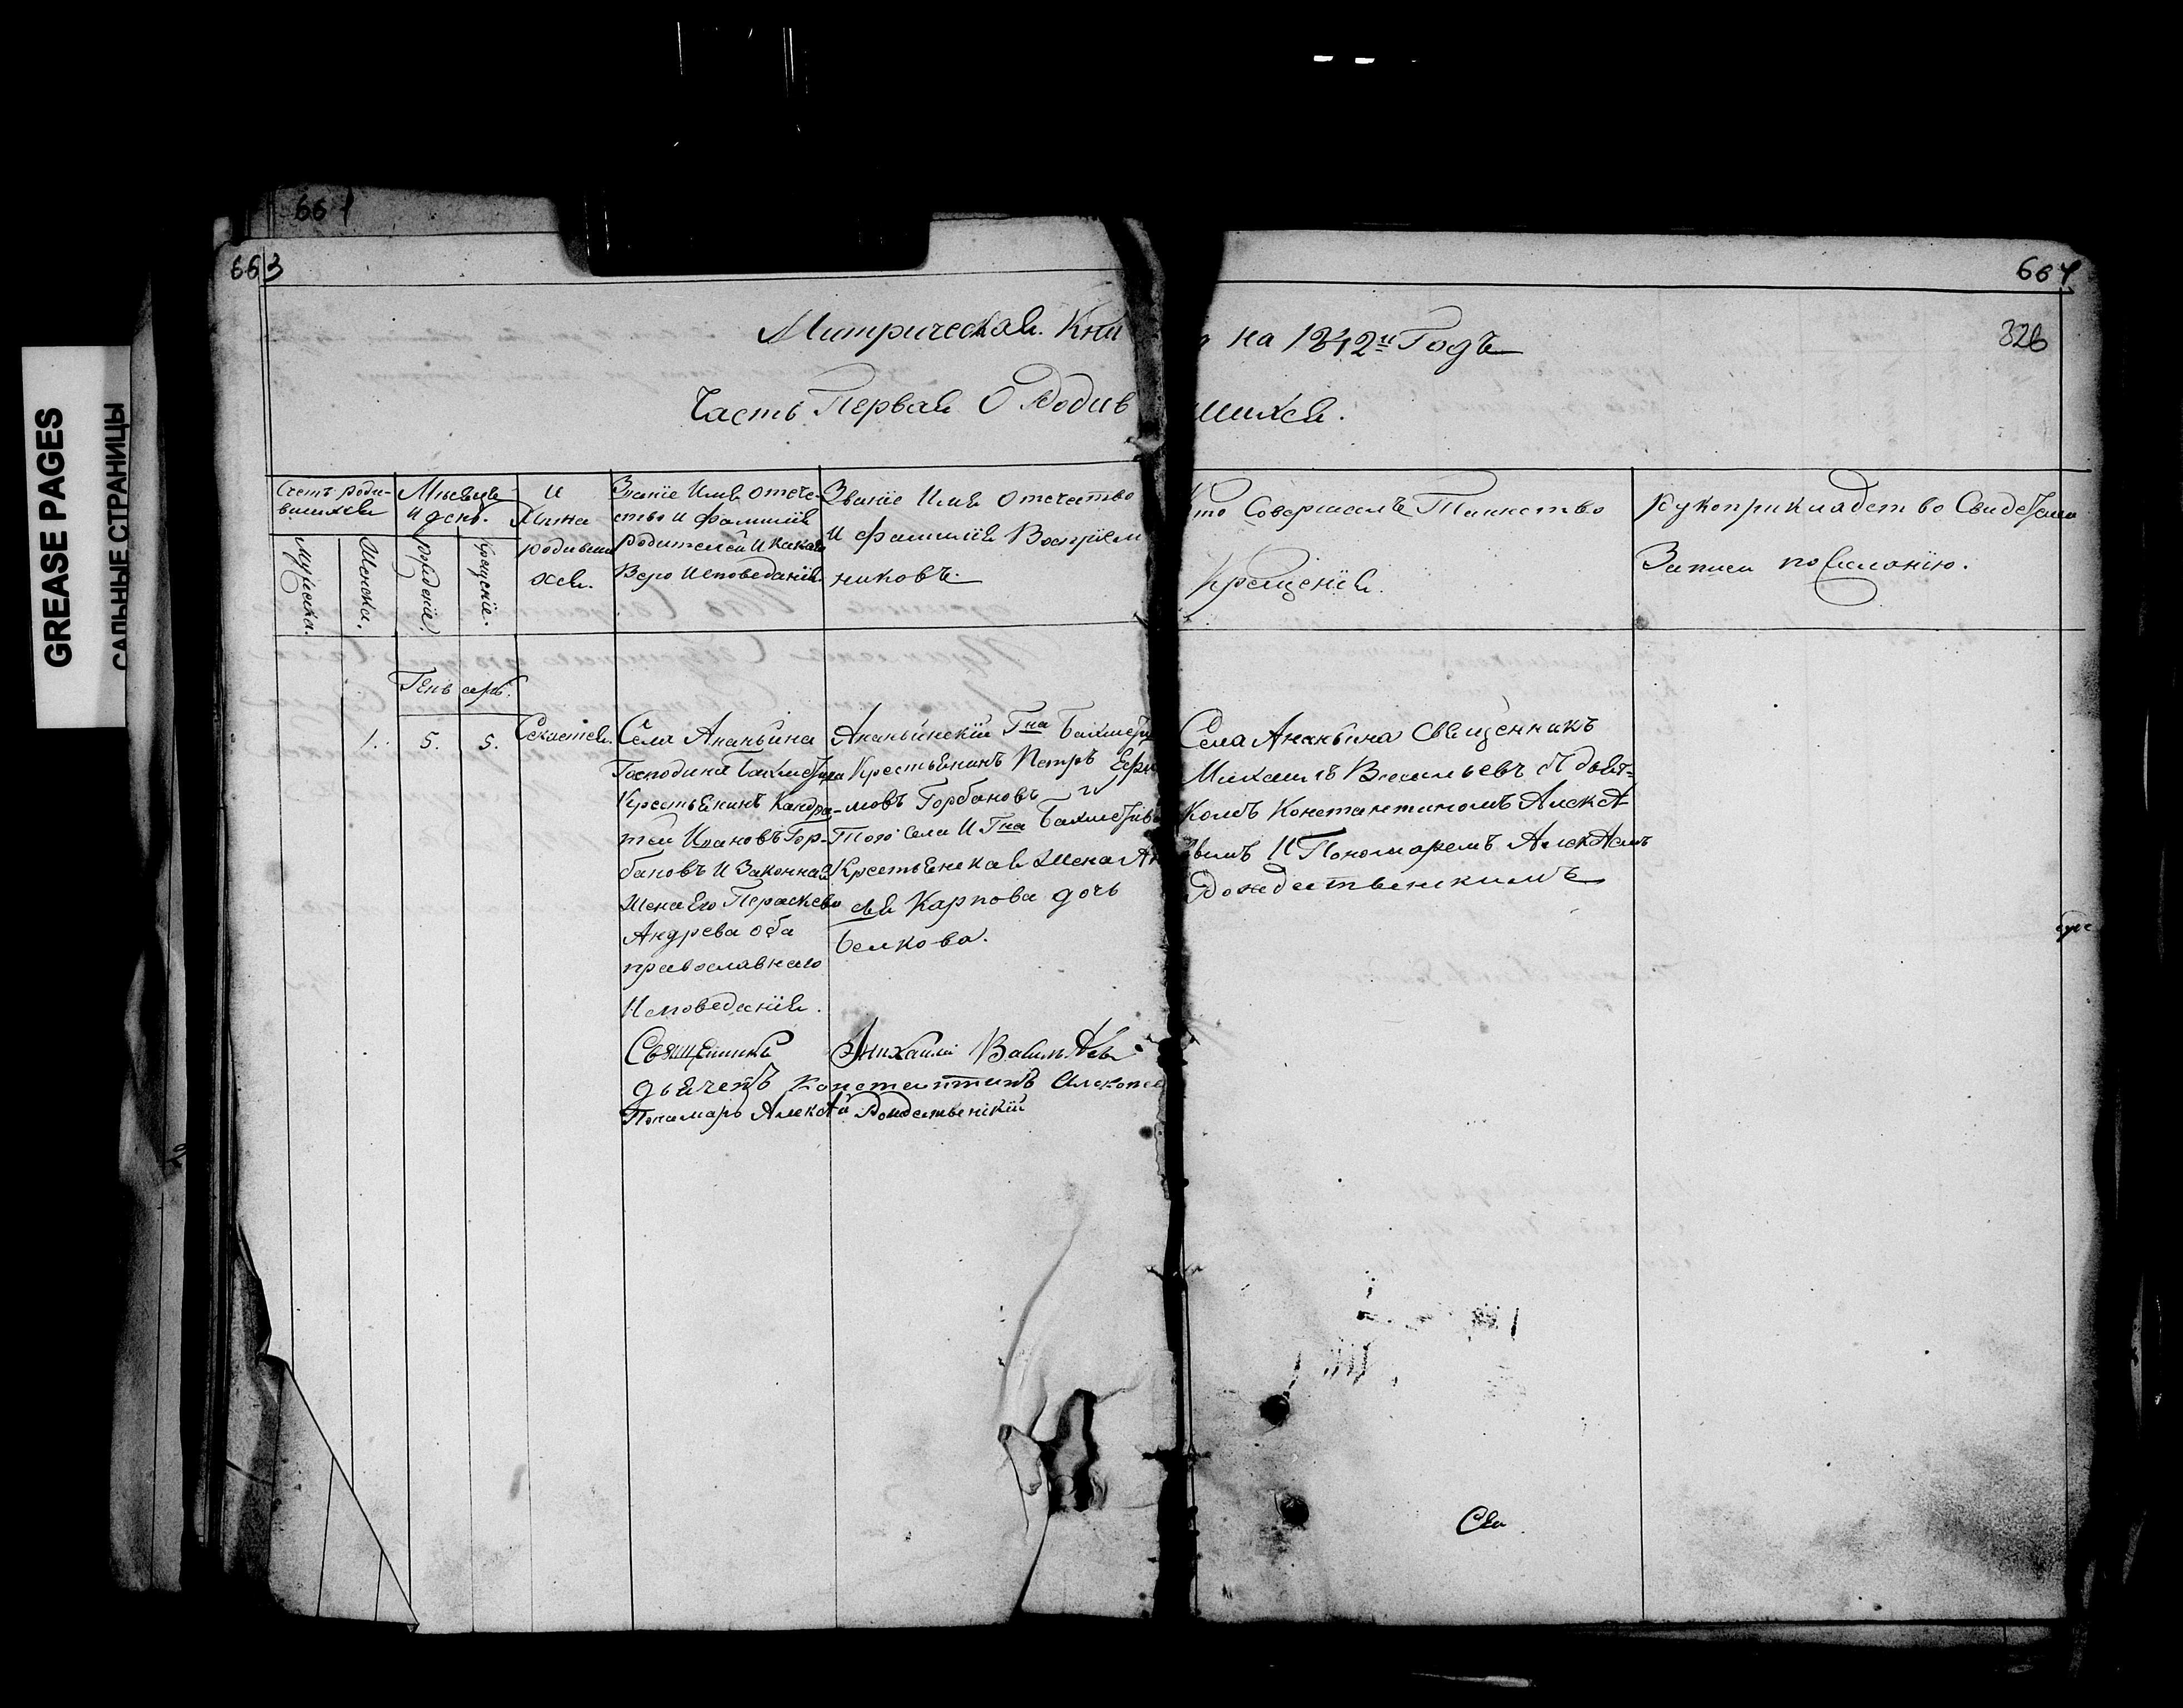 GREASE PAGES
САЛЬНЫЕ СТРАНИЦЫ
661
663
664
326
Митрическая Кни
на 1842й Годъ
Часть Первая О Родив
шихся.
Счетъ роди-
вшихся
Мужеска.
Женска.
Мѣсяцъ
и день.
рожденіе.
Крещеніе.
И
Мѣна
родивши
хся.
Званіе Имя отече-
ство и фамилія
родителей и какой
Веро исповеданія.
Званіе Имя Отечество
и фамилія Воспріем
никовъ.
то Совершалъ Таинство
Крещенія.
Рукоприкладство Свидетелей
Записи по желанію.
Генварь.
1. 5. 5.
Села Ананьина
Господина Бахметева
Крестьянинъ Кандра-
тей Ивановъ Гор-
бановъ и Законная
Жена Его Параскева
Андрева оба
православнаго
Исповеданія.
Ананьинскій Гна Бахмете
Крестьянинъ Петръ Ефи
-мовъ Горбановъ и
Того села и Гна Бахметева
Крестьянская Жена Ан
Карпова дочь
Белкова.
Села Ананьина Священникъ
Михаилъ Васильевъ с дьяч-
комъ Константиномъ Алексѣ
вымъ и Пономаремъ Алексѣемъ
Рождественскимъ
Священникъ Михаилъ Васильевъ
дьячекъ Константинъ Алексее
Понамарь Алексѣй Рождественскій
Свя